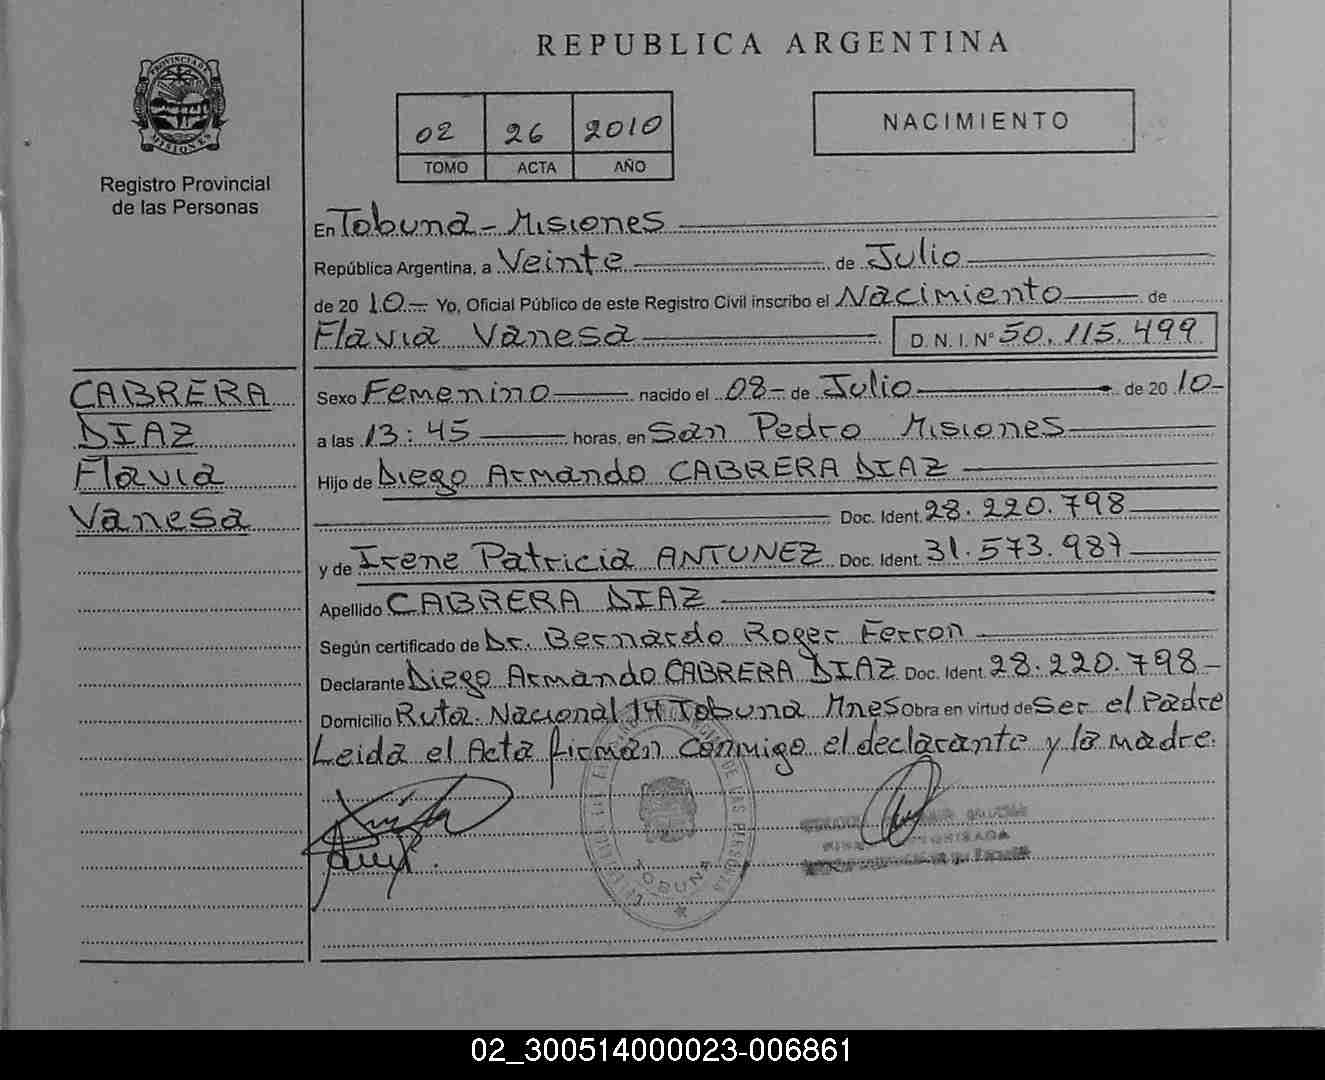 REPUBLICA ARGENTINA
PROVINCIA D MISIONES
Registro Provincial
de las Personas
02 26 2010
TOMO ACTA AÑO
NACIMIENTO
En Tobuna - Misiones
República Argentina, a Veinte de Julio
de 20 10.- Yo, Oficial Público de este Registro Civil inscribo el Nacimiento de
Flavia Vanesa D.N.I. Nº 50.115.499
CABRERA
DIAZ
Flavia
Vanesa
Sexo Femenino nacido el 08- de Julio de 20 10-
a las 13:45 horas, en San Pedro Misiones
Hijo de Diego Armando CABRERA DIAZ
Doc. Ident. 28.220.798
y de Irene Patricia ANTUNEZ Doc. Ident. 31.573.987
Apellido CABRERA DIAZ
Según certificado de Dr. Bernardo Roger Ferron
Declarante Diego Armando CABRERA DIAZ Doc. Ident. 28.220.798-
Domicilio Ruta Nacional 14 Tobuna Mnes Obra en virtud de Ser el Padre
Leida el Acta firman conmigo el declarante y la madre.
DE LAS PERSONAS
TOBUNA
02_300514000023-006861